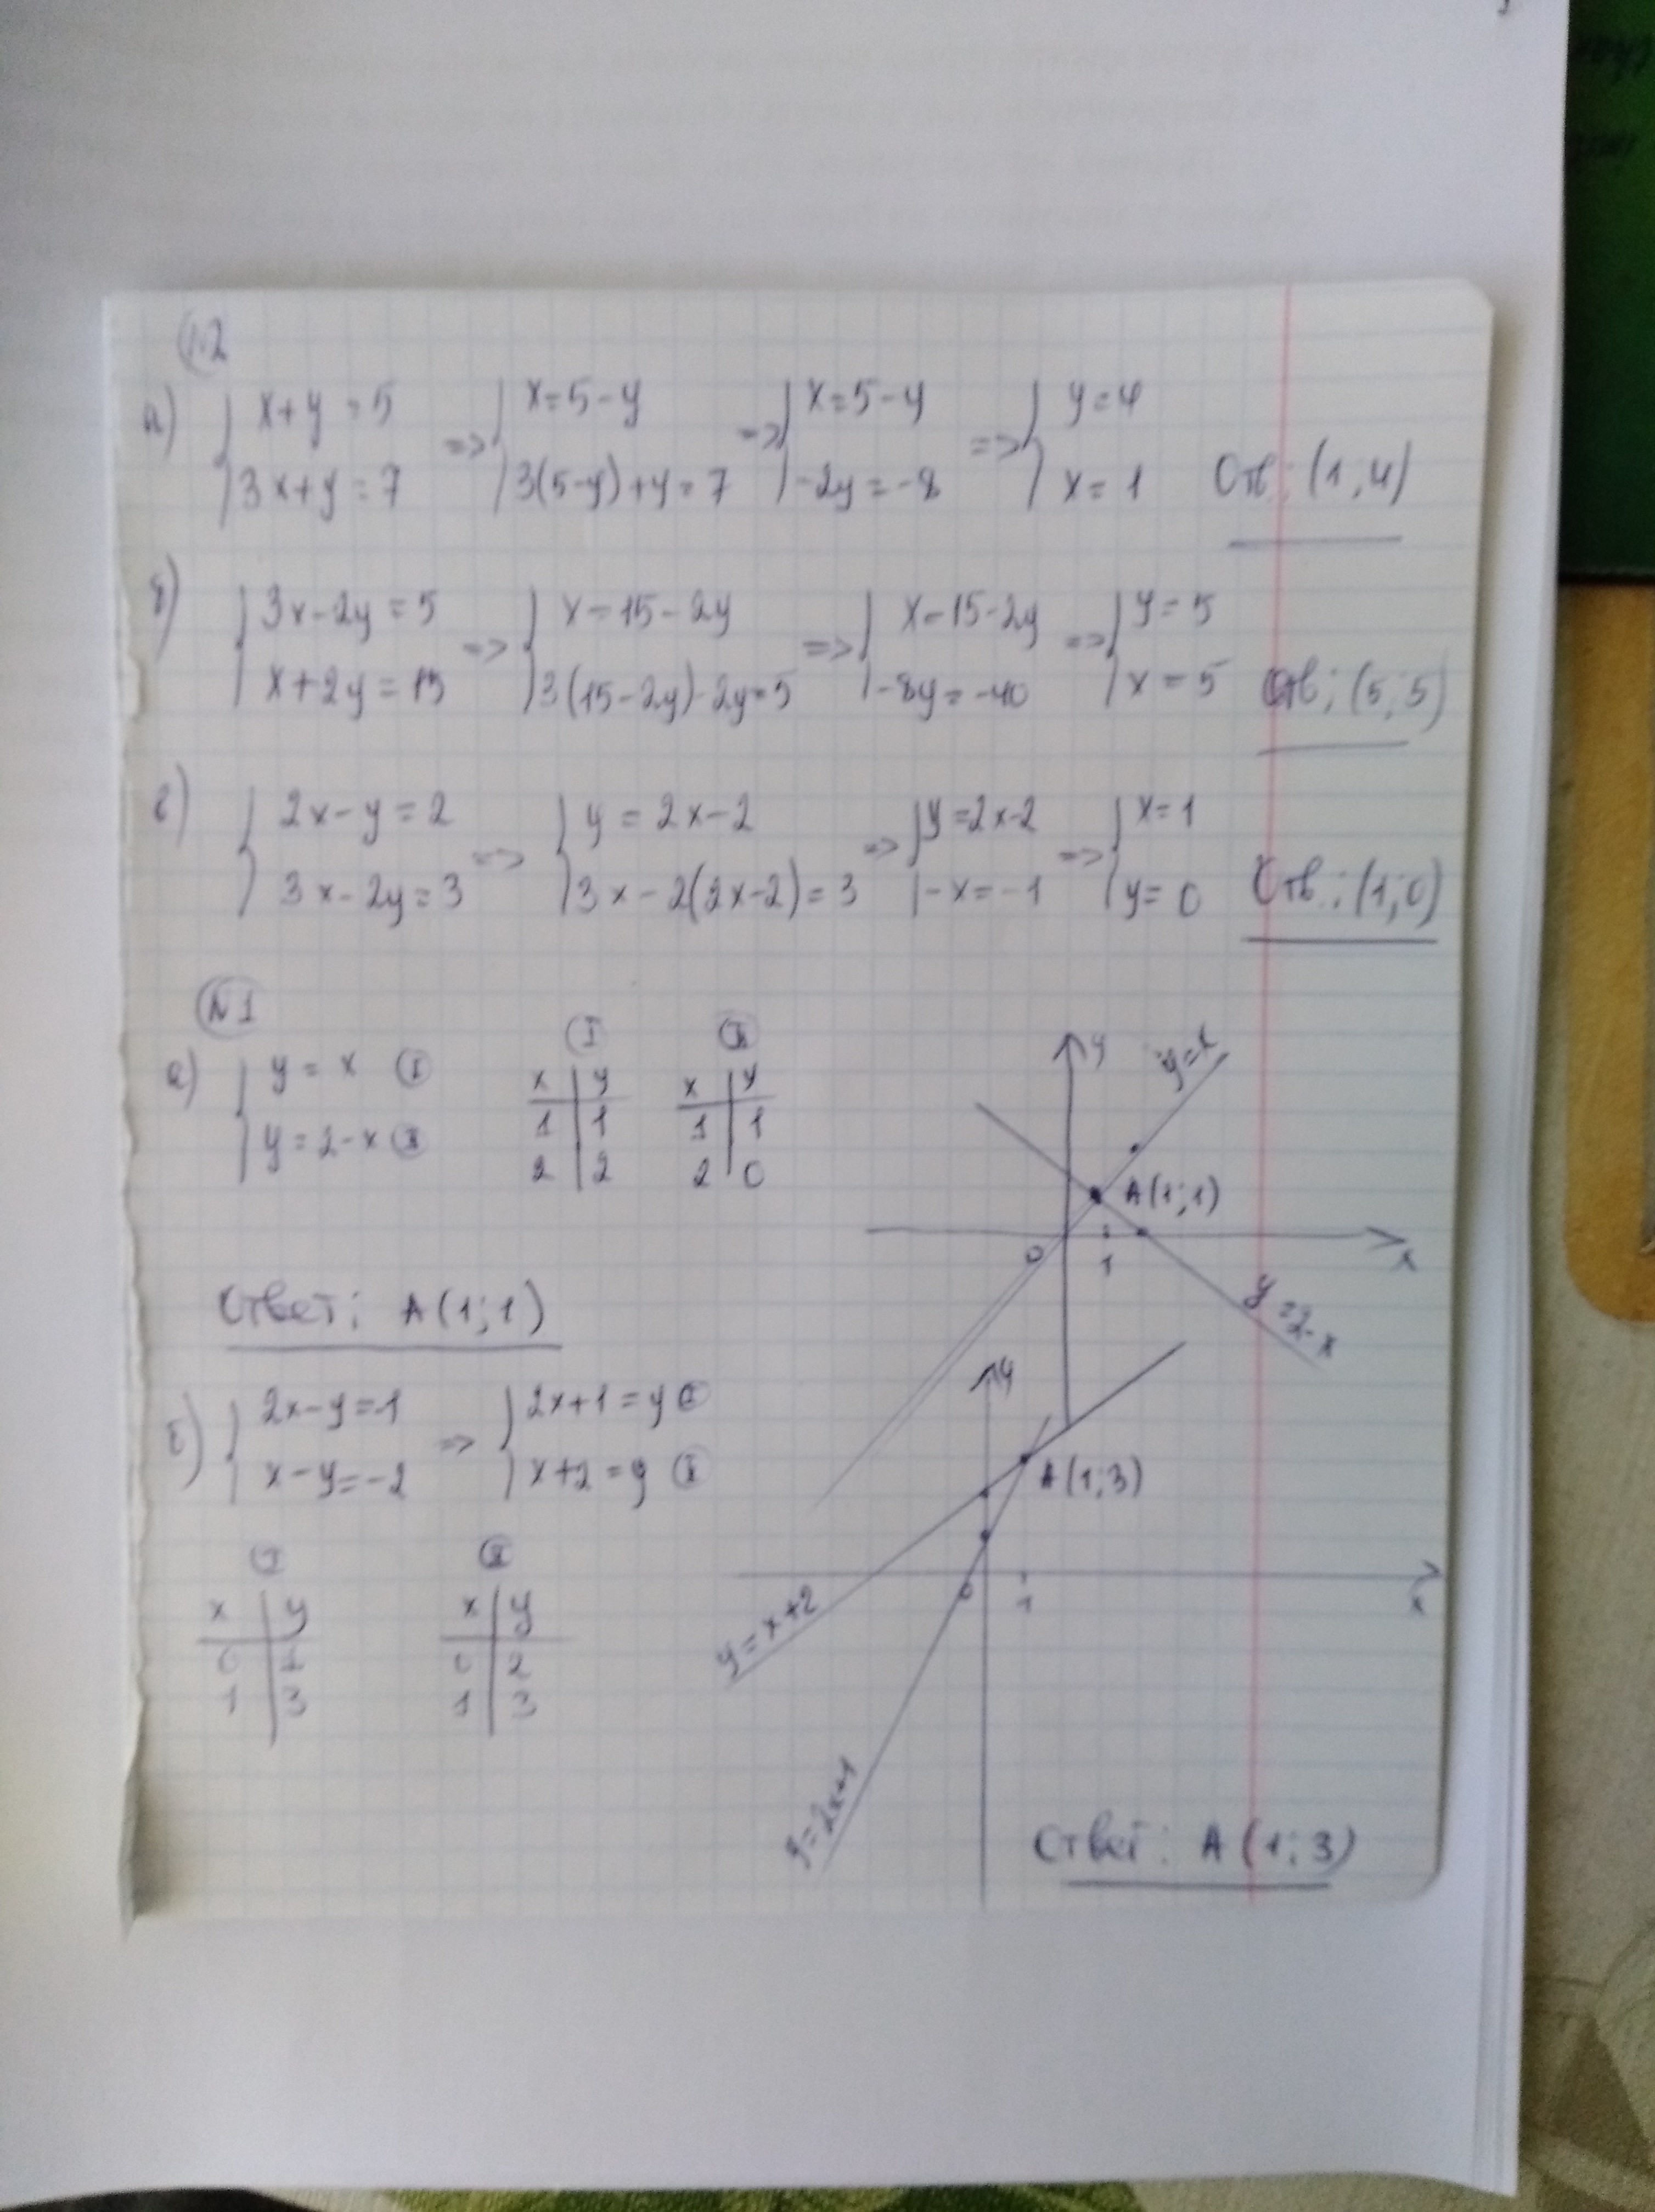 №2
а) { x+y=5 3x+y=7 => { x=5-y 3(5-y)+y=7 => { x=5-y -2y=-8 => { y=4 x=1 Отв.: (1;4)
б) { 3x-2y=5 x+2y=15 => { x=15-2y 3(15-2y)-2y=5 => { x=15-2y -8y=-40 => { y=5 x=5 Отв.: (5;5)
г) { 2x-y=2 3x-2y=3 => { y=2x-2 3x-2(2x-2)=3 => { y=2x-2 -x=-1 => { x=1 y=0 Отв.: (1;0)
№1
а) { y=x I y=2-x II
I
x y
1 1
2 2
II
x y
1 1
2 0
y
y=x
A(1;1)
0 1 x
y=2-x
Ответ: A(1;1)
б) { 2x-y=-1 x-y=-2 => { 2x+1=y I x+2=y II
I
x y
0 1
1 3
II
x y
0 2
1 3
y
A(1;3)
0 1 x
y=x+2
y=2x+1
Ответ: A(1;3)